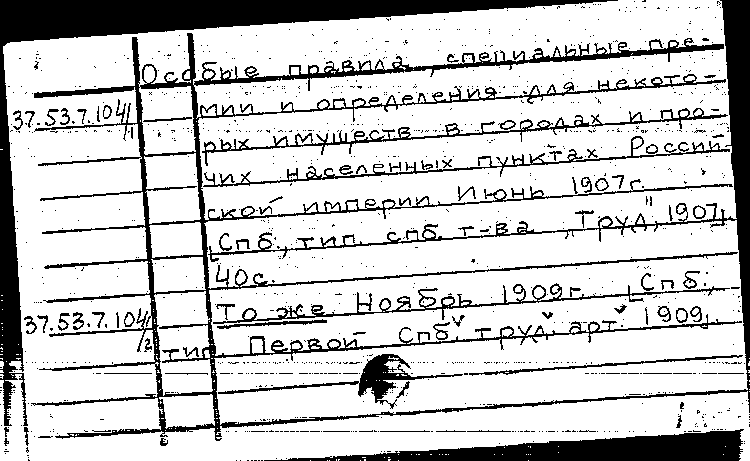 Особые правила, специальные пре-
37.53.7.104/1 мии и определения для некото-
рых имуществ в городах и про-
чих населенных пунктах Россий-
ской империи. Июнь 1907г.
[Спб., тип. спб. т-ва „Труд", 1907].
40с.
37.53.7.104/2 То же. Ноябрь 1909г. [Спб.,
тип. Первой Спб. труд. арт. 1909].